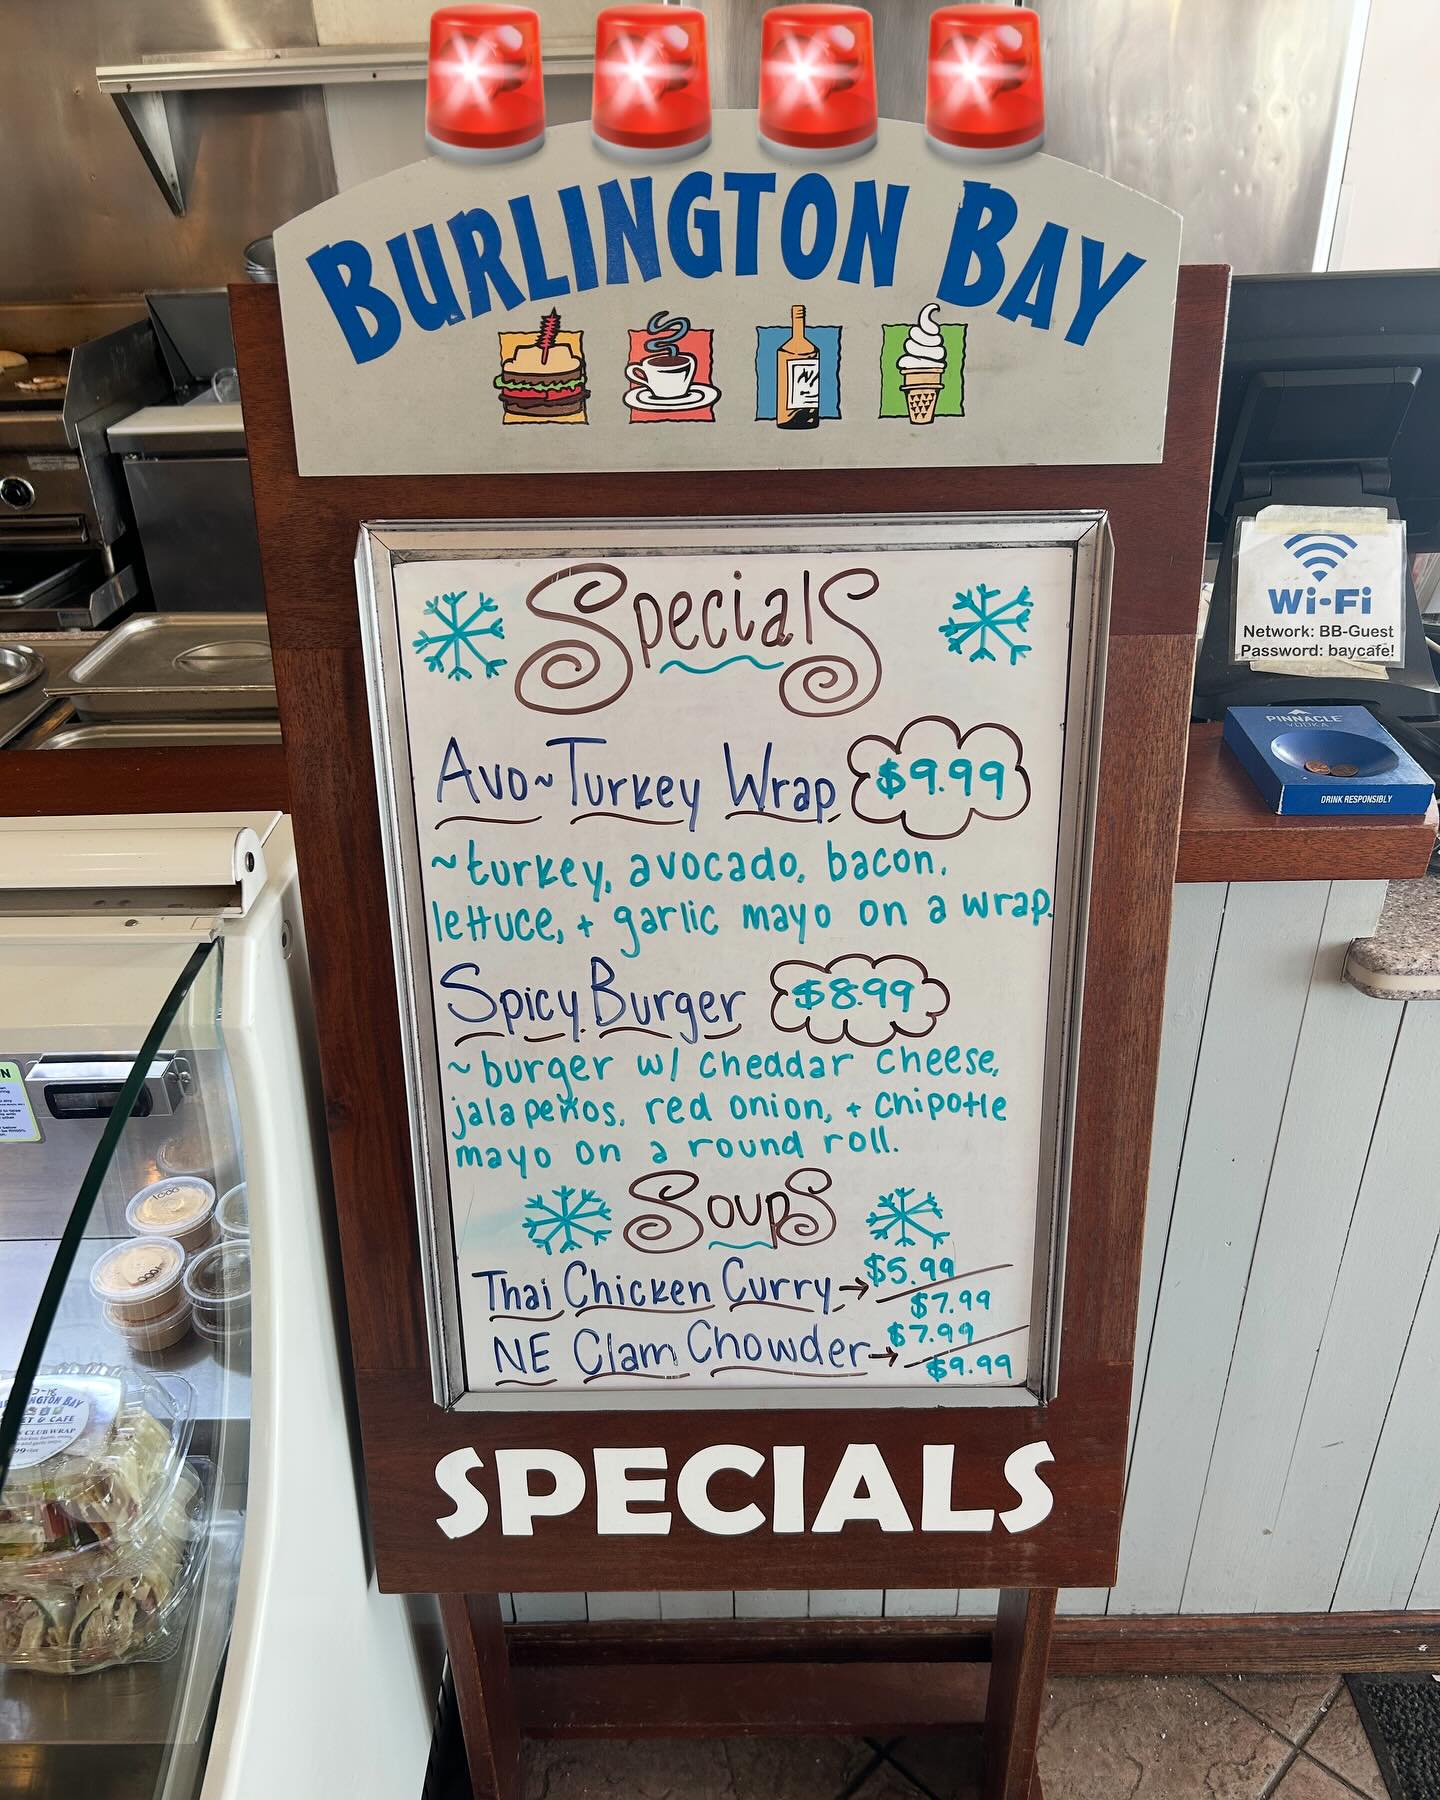 BURLINGTON BAY
Wi-Fi
Network: BB-Guest
Password: baycafe!
PINNACLE
VODKA
DRINK RESPONSIBLY
Specials
Avo~Turkey Wrap $9.99
~turkey, avocado, bacon,
lettuce, + garlic mayo on a wrap.
Spicy Burger $8.99
~burger w/ cheddar cheese,
jalapeños, red onion, + chipotle
mayo on a round roll.
Soups
Thai Chicken Curry→ $5.99
$7.99
NE Clam Chowder→ $7.99
$9.99
SPECIALS
NGTON BAY
ET & CAFE
CLUB WRAP